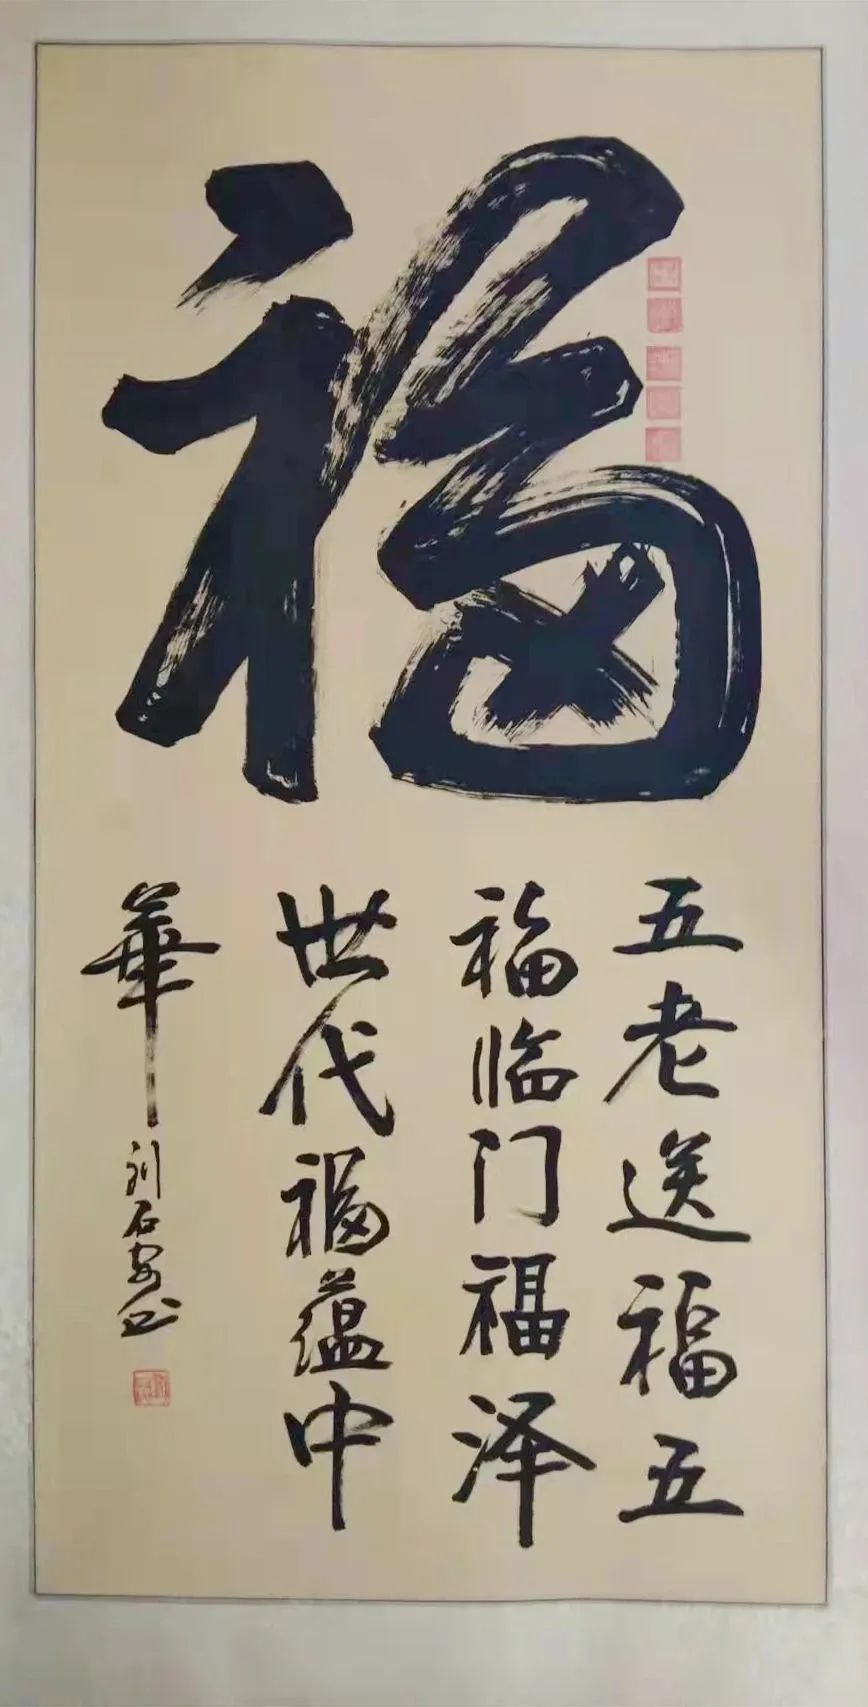 福
五老送福五
福临门福泽
世代福蕴中
華
刘石安书